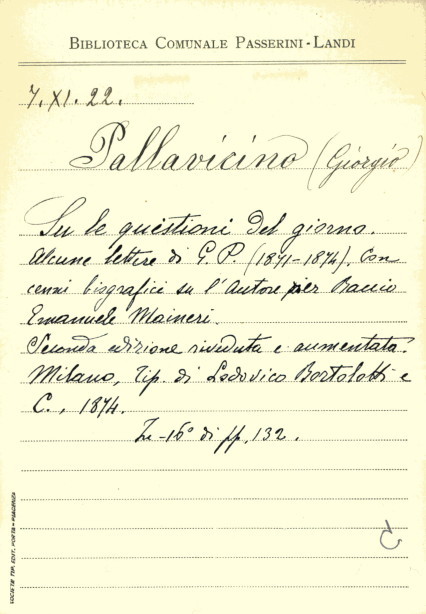 BIBLIOTECA COMUNALE PASSERINI-LANDI
7. XI. 22.
Pallavicino (Giorgio)
Su le questioni del giorno.
Alcune lettere di G. P. (1871-1874). Con
cenni biografici su l'Autore per Baccio
Emanuele Maineri.
Seconda edizione riveduta e aumentata.
Milano, Tip. di Lodovico Bortolotti e
C., 1874.
In-16° di pp. 132.
SOCIETÀ TIP. EDIT. PORTA - PIACENZA